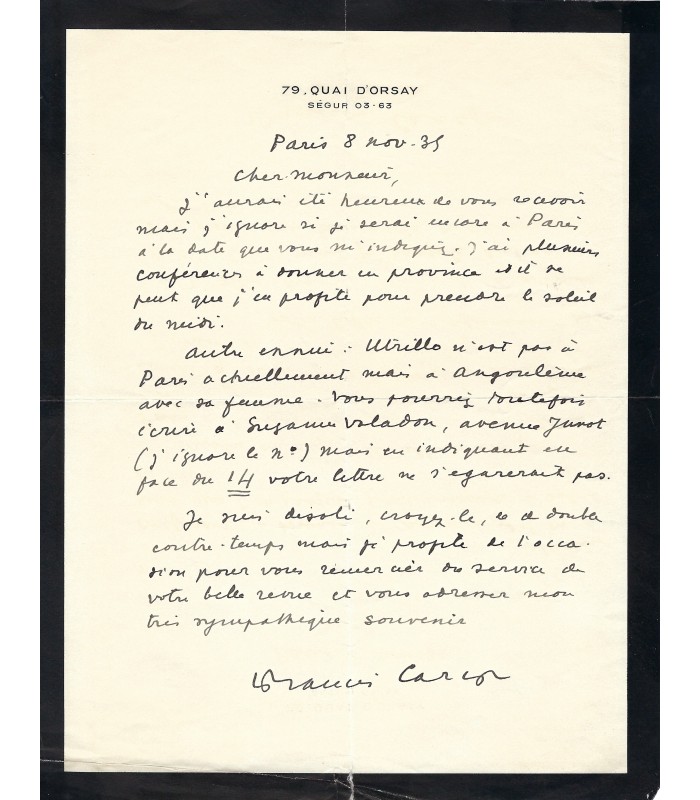 79, QUAI D'ORSAY
SÉGUR 03-63
Paris 8 nov. 35
Cher monsieur,
J'aurais été heureux de vous recevoir
mais j'ignore si je serai encore à Paris
à la date que vous m'indiquez. J'ai plusieurs
conférences à donner en province et il se
peut que j'en profite pour prendre le soleil
du midi.
Autre ennui : Utrillo n'est pas à
Paris actuellement mais à Angoulême
avec sa femme. Vous pourrez toutefois
écrire à Suzanne Valadon, avenue Junot
(j'ignore le n°) mais en indiquant en
face du 14 votre lettre ne s'égarerait pas.
Je suis désolé, croyez-le, de ce double
contre-temps mais je profite de l'occa-
sion pour vous remercier du service de
votre belle revue et vous adresser mon
très sympathique souvenir
Francis Carco